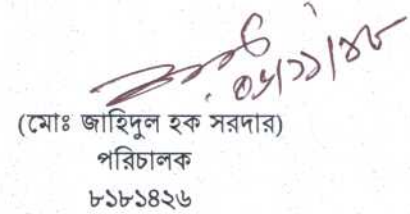 ০৬/১১/১৮
(মোঃ জাহিদুল হক সরদার)
পরিচালক
৮১৮১৪২৬